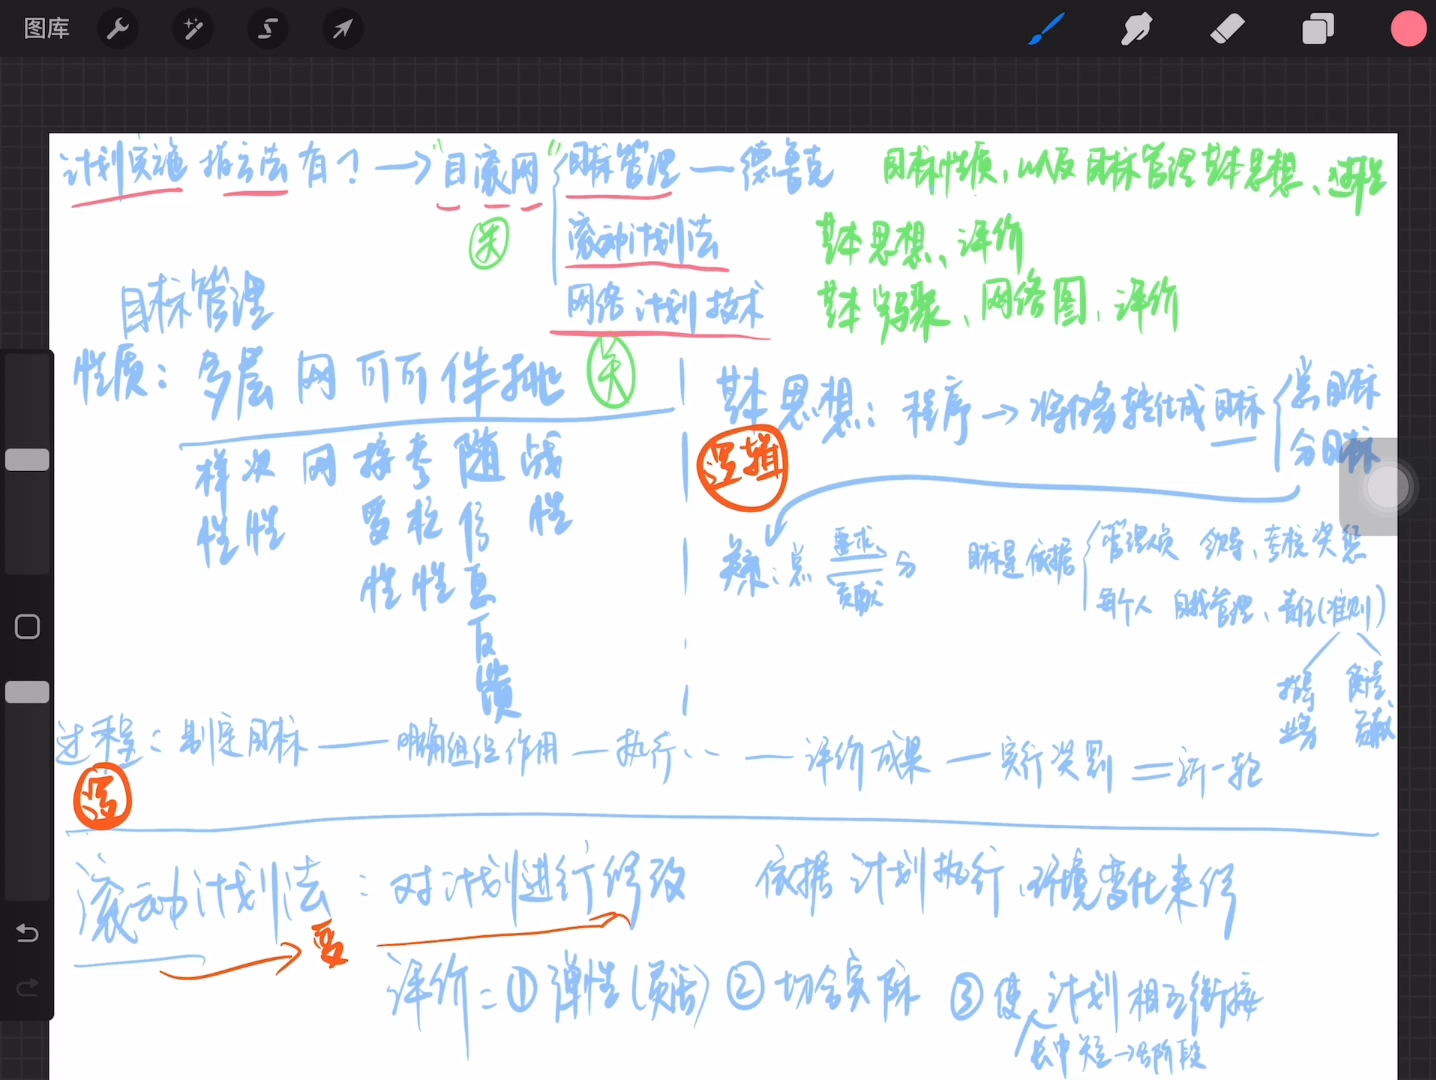 图库
计划实施 指方法有？→“目滚网” 目标管理—德鲁克 目标性质,以及目标管理基本思想、过程
关 滚动计划法 基本思想、评价
网络计划技术 基本步骤、网络图、评价
目标管理
性质：多层网可可伴挑 关
样 次 网 接 考 随 战
性 性 受 核 信 性
性 性 息
反
馈
基本思想：程序→将任务转化成目标 总目标
分目标
逻辑
关系：总 要求 分
贡献
目标是依据 管理人员 领导、考核奖惩
每个人 自我管理、责任(准则)
指导 衡量
业务 贡献
过程：制定目标——明确组织作用—执行··—评价成果—实行奖罚=新一轮
逻
滚动计划法：对计划进行修改 依据计划执行、环境变化来修
变
评价：①弹性(灵活) ②切合实际 ③使计划相互衔接
长中短→各阶段